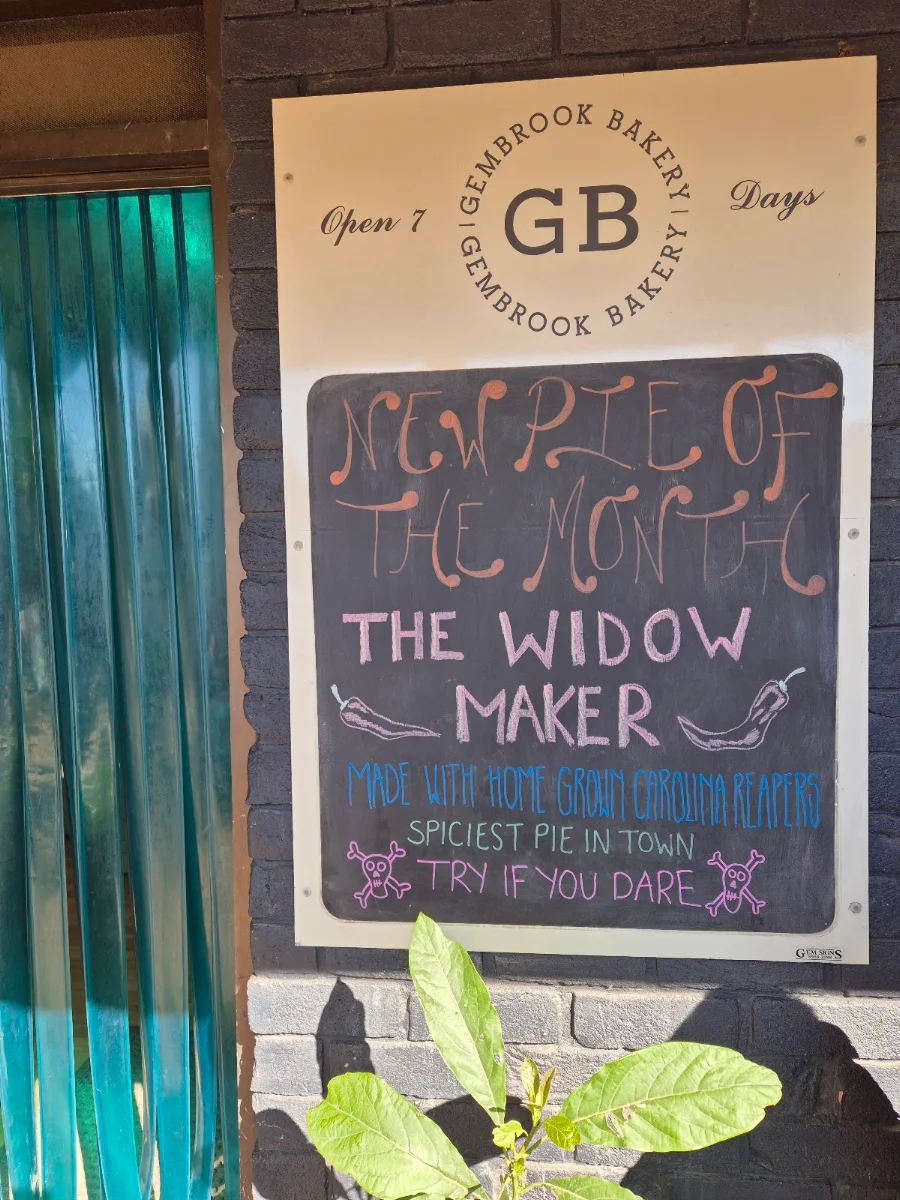 GEMBROOK BAKERY
Open 7
GB
Days
GEMBROOK BAKERY
NEW PIE OF
THE MONTH
THE WIDOW
MAKER
MADE WITH HOME GROWN CAROLINA REAPERS
SPICIEST PIE IN TOWN
TRY IF YOU DARE
GEM SIGNS